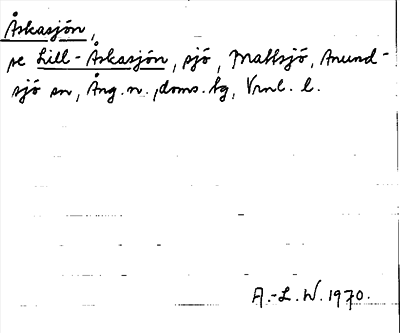 Åskasjön,
se Lill-Åskasjön, sjö, Mattsjö, Anund-
sjö sn, Ång.n., doms.bg, Vrnl. l.
A.-L. W. 1970.